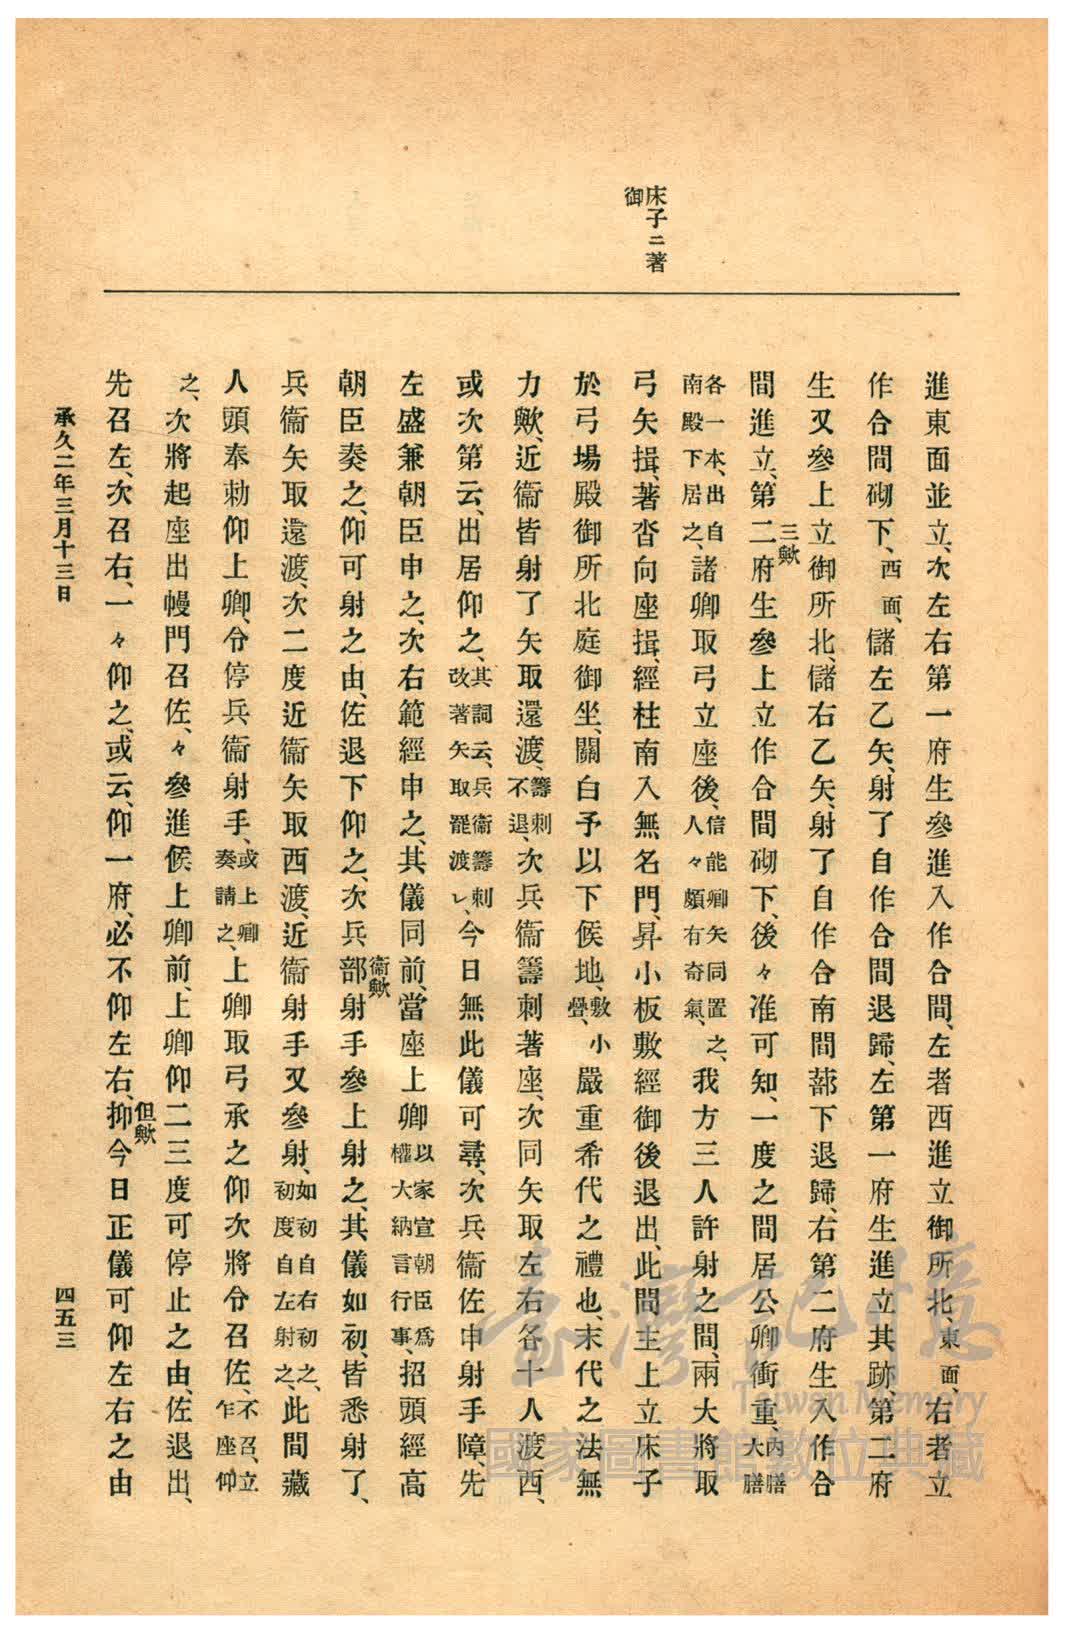 床子ニ著
御
進東面並立、次左右第一府生參進入作合間、左者西進立御所北、東面、右者立
作合間砌下、西面、儲左乙矢、射了自作合間退歸、左第一府生進立其跡、第二府
生又參上立御所北、儲右乙矢、射了自作合南間蔀下退歸、右第二府生入作合
三歟
間進立、第二府生參上立作合間砌下、後々准可知、一度之間居公卿衝重、內膳大膳
各一本、出自南殿下居之、諸卿取弓立座後、信能卿矢同置之、人々頗有奇氣、我方三人許射之間、兩大將取
弓矢揖、著沓向座揖、經柱南入無名門、昇小板敷經御後退出、此間主上立床子
於弓場殿御所北庭御坐、關白予以下候地、敷小疊、嚴重希代之禮也、末代之法無
力歟、近衞皆射了矢取還渡、籌刺不退、次兵衞籌刺著座、次同矢取左右各十人渡西、
或次第云、出居仰之、其詞云、兵衞籌刺改著矢取罷渡レ、今日無此儀可尋、次兵衞佐申射手障、先
左盛兼朝臣申之、次右範經申之、其儀同前、當座上卿以家宣朝臣爲權大納言行事、招頭經高
衞歟
朝臣奏之、仰可射之由、佐退下仰之、次兵部射手參上射之、其儀如初、皆悉射了、
兵衞矢取還渡、次二度近衞矢取西渡、近衞射手又參射、如初自右初之、初度自左射之、此間藏
人頭奉勅仰上卿、令停兵衞射手、或上卿奏請之、上卿取弓承之仰次將令召佐、不召、立乍座仰
之、次將起座出幔門召佐、々參進候上卿前、上卿仰二三度可停止之由、佐退出、
但歟
先召左、次召右、一々仰之、或云、仰一府、必不仰左右、抑今日正儀可仰左右之由
承久二年三月十三日
四五三
臺灣記憶
Taiwan Memory
國家圖書館數位典藏